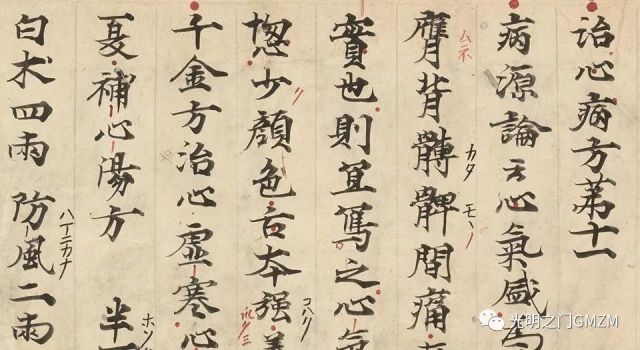 治心病方苐十一
病源論云心氣盛為
膺背髆髀間痛
ムネ
カタ
モヽノ
實也則宜寫之心氣
惚少顏色舌本强
リ
コハリ
千金方治心虛寒心
憂補心湯方 半
白朮四兩 防風二兩
光明之门GMZM